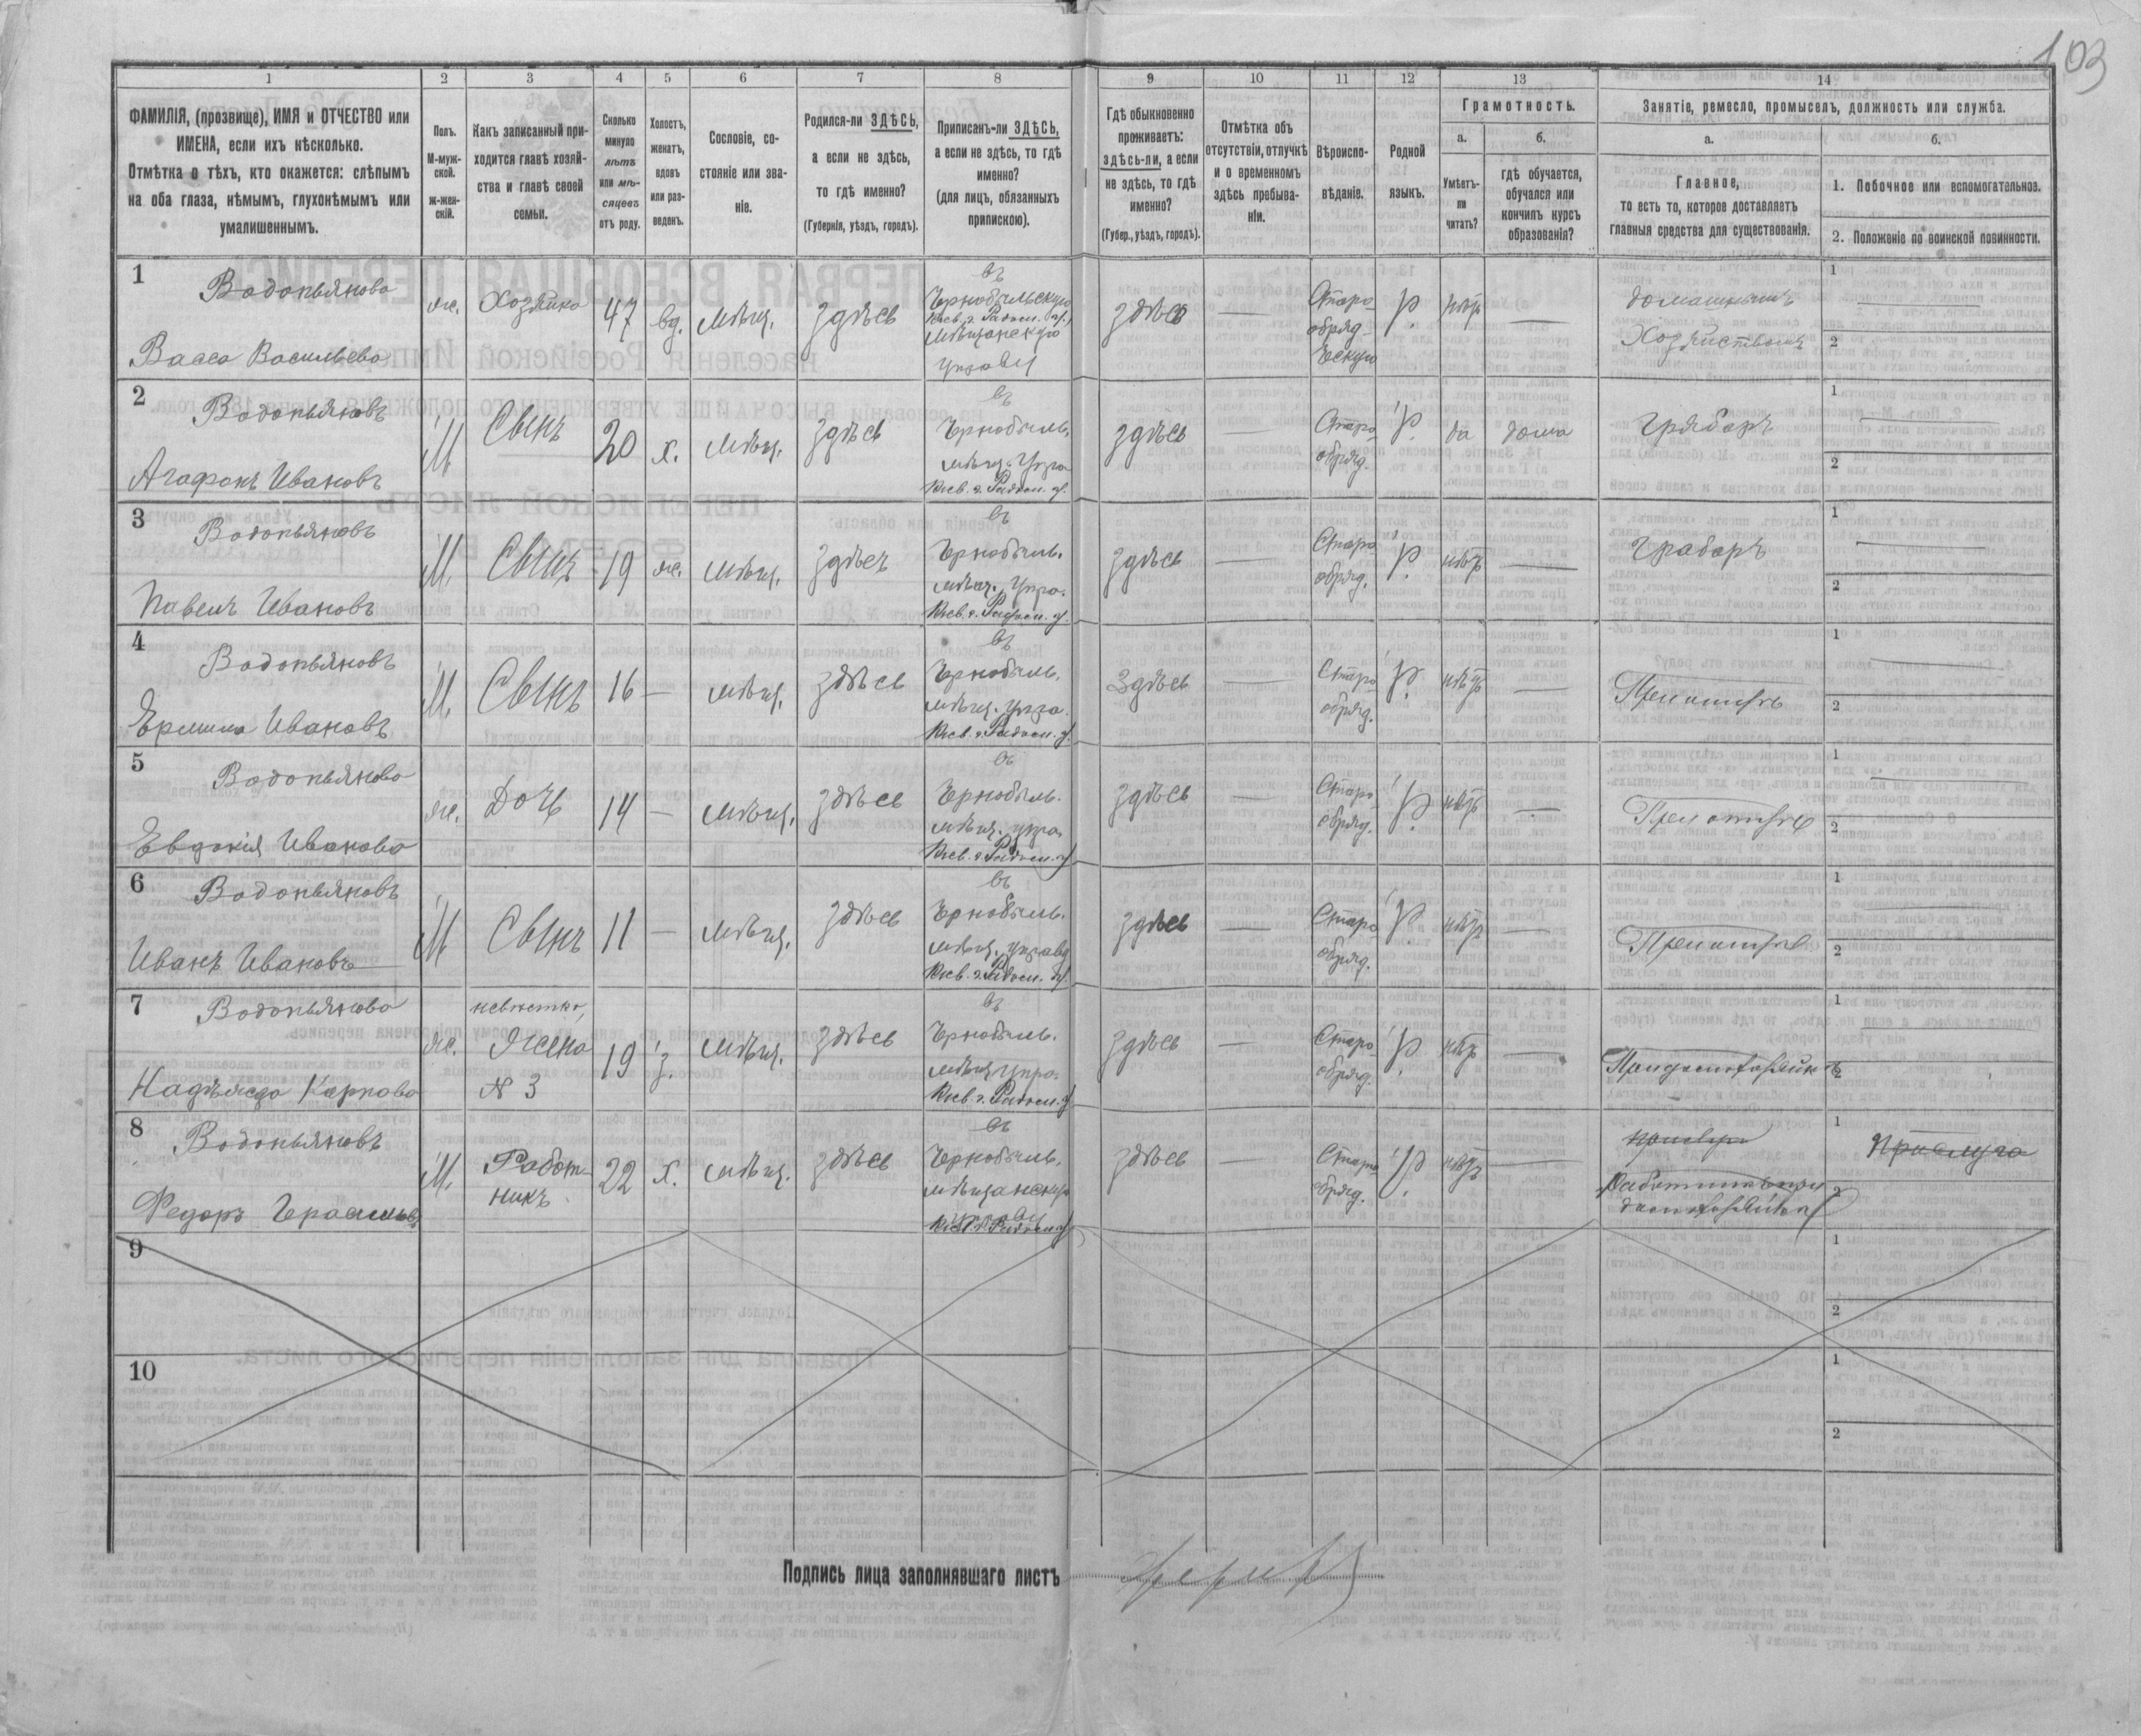 103
1 2 3 4 5 6 7 8 9 10 11 12 13 14
ФАМИЛІЯ, (прозвище), ИМЯ и ОТЧЕСТВО или
ИМЕНА, если ихъ нѣсколько.
Отмѣтка о тѣхъ, кто окажется: слѣпымъ
на оба глаза, нѣмымъ, глухонѣмымъ или
умалишеннымъ.
Полъ.
М-муж-
ской.
ж-жен-
скій.
Какъ записанный при-
ходится главѣ хозяй-
ства и главѣ своей
семьи.
Сколько
минуло
лѣтъ
или мѣ-
сяцевъ
отъ роду.
Холостъ,
женатъ,
вдовъ
или раз-
веденъ.
Сословіе, со-
стояніе или зва-
ніе.
Родился-ли ЗДѢСЬ,
а если не здѣсь,
то гдѣ именно?
(Губернія, уѣздъ, городъ).
Приписанъ-ли ЗДѢСЬ,
а если не здѣсь, то гдѣ
именно?
(для лицъ, обязанныхъ
припискою).
Гдѣ обыкновенно
проживаетъ:
здѣсь-ли, а если
не здѣсь, то гдѣ
именно?
(Губер., уѣздъ, городъ).
Отмѣтка объ
отсутствіи, отлучкѣ
и о временномъ
здѣсь пребыва-
ніи.
Вѣроиспо-
вѣданіе.
Родной
языкъ.
Грамотность.
а.
Умѣетъ-
ли
читать?
б.
гдѣ обучается,
обучался или
кончилъ курсъ
образованія?
Занятіе, ремесло, промыселъ, должность или служба.
а.
Главное,
то есть то, которое доставляетъ
главныя средства для существованія.
б.
1. Побочное или вспомогательное.
2. Положеніе по воинской повинности.
1
Водопьянова
Васса Васильева
ж.
Хозяйка
47
вд.
мѣщ.
здѣсь
въ
Чрнобыльскую
Кіев. г. Радом. у.
мѣщанскую
управу
здѣсь
Старо-
обряд-
ческую
р.
нѣтъ
домашнимъ
Хозяйствомъ
1
2
2
Водопьяновъ
Агафонъ Ивановъ
М
Сынъ
20
х.
мѣщ.
здѣсь
въ
Чрнобыль.
мѣщ. Упра
Кіев. г. Радом. у.
здѣсь
Старо-
обряд.
р.
да
дома
Грабарь
1
2
3
Водопьяновъ
Павелъ Ивановъ
М.
Сынъ
19
ж.
мѣщ.
здѣсь
въ
Чрнобыль.
мѣщ. Упра.
Кіев. г. Радом. у.
здѣсь
Старо
обряд.
р.
нѣтъ
Грабарь
1
2
4
Водопьяновъ
Ермила Ивановъ
М.
Сынъ
16
мѣщ.
здѣсь
въ
Чрнобыль.
мѣщ. Упра.
Кіев. г. Радом. у.
Здѣсь
Старо
обряд.
р.
нѣтъ
При матери
1
2
5
Водопьянова
Евдокія Иванова
ж.
Дочь
14
мѣщ.
здѣсь
въ
Чрнобыль.
мѣщ. упра.
Кіев. г. Радом. у.
здѣсь
Старо
обряд.
р.
нѣтъ
При матери
1
2
6
Водопьяновъ
Иванъ Ивановъ
М
Сынъ
11
мѣщ.
здѣсь
въ
Чрнобыль.
мѣщ. управу
Кіев. г. Радом. у.
здѣсь
Старо
обряд.
р.
нѣтъ
При матери
1
2
7
Водопьянова
Надѣжда Карпова
ж.
невѣстка,
Жена
№ 3
19
з.
мѣщ.
здѣсь
въ
Чрнобыль.
мѣщ. Упра.
Кіев. г. Радом. у.
здѣсь
Старо
обряд.
р.
нѣтъ
1
2
8
Водопьяновъ
Федоръ Герасимовъ
М.
Работ-
никъ
22
х.
мѣщ.
здѣсь
въ
Чрнобыль.
мѣщанскую
управу
Кіев. г. Радом. у.
здѣсь
Старо
обряд.
р.
нѣтъ
домохозяйка
1
Прислуга
2
9
1
2
10
1
2
Подпись лица заполнявшаго листъ